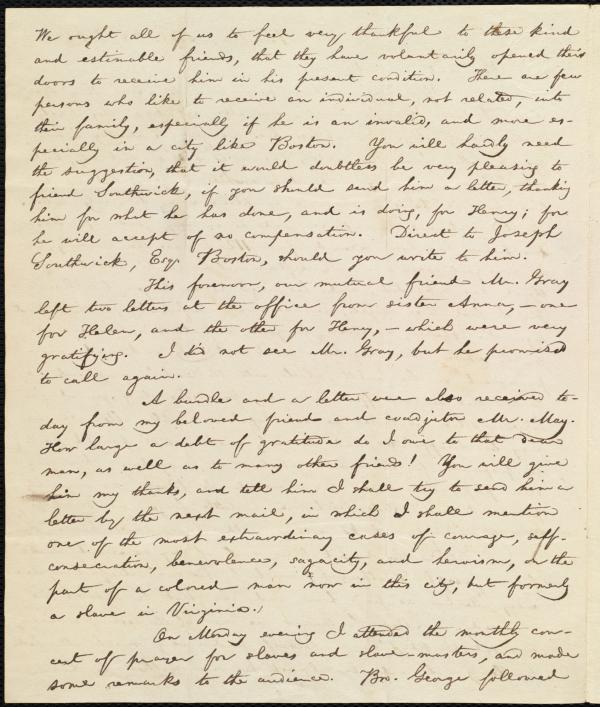 We ought all of us to feel very thankful to these kind
and estimable friends, that they have voluntarily opened their
doors to receive him in his present condition. There are few
persons who like to receive an individual, not related, into
their family, especially if he is an invalid, and more es-
pecially in a city like Boston. You will hardly need
the suggestion, that it would doubtless be very pleasing to
friend Southwick, if you should send him a letter, thanking
him for what he has done, and is doing, for Henry; for
he will accept of no compensation. Direct to Joseph
Southwick, Esq. Boston, should you write to him.
This forenoon, our mutual friend Mr. Gray
left two letters at the office from sister Anna, – one
for Helen, and the other for Henry, – which were very
gratifying. I did not see Mr. Gray, but he promised
to call again.
A bundle and a letter were also received to-
day from my beloved friend and coadjutor Mr. May.
How large a debt of gratitude do I owe to that dear
man, as well as to many other friends! You will give
him my thanks, and tell him I shall try to send him a
letter by the next mail, in which I shall mention
one of the most extraordinary cases of courage, self-
consecration, benevolence, sagacity, and heroism, on the
part of a colored man now in this city, but formerly
a slave in Virginia.
On Monday evening I attended the monthly con-
cert of prayer for slaves and slave-masters, and made
some remarks to the audience. Bro. George followed